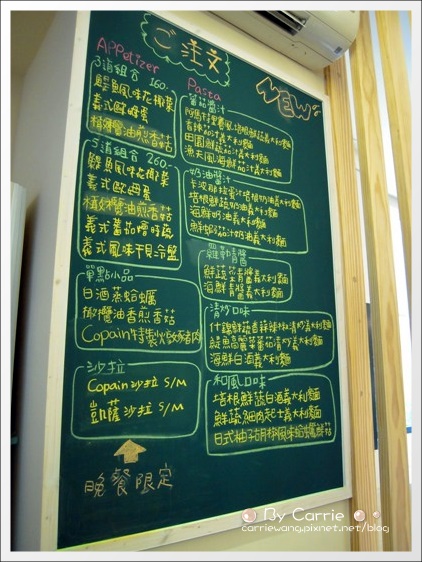 ご注文
NEW
APPetizer
3道組合 160.
鯷魚風味花椰菜
義式歐姆蛋
橄欖油煎香菇
5道組合 260.
鯷魚風味花椰菜
義式歐姆蛋
橄欖油香煎香菇
義式蕃茄燉時蔬
義式風味干貝冷盤
單點小品
白酒蒸蛤蠣
橄欖油香煎香菇
Copain特製火燉豬肉
沙拉
Copain沙拉 S/M
凱薩沙拉 S/M
晚餐限定
Pasta
蕃茄醬汁
香辣茄汁義大利麵
田園鮮蔬茄汁義大利麵
漁夫風海鮮茄汁義大利麵
奶油醬汁
卡波那拉蛋汁培根奶油義大利麵
培根鮮蔬奶油義大利麵
海鮮奶油義大利麵
鮮蝦茄汁奶油義大利麵
羅勒青醬
鮮蔬羅勒青醬義大利麵
海鮮青醬義大利麵
清炒口味
什錦鮮蔬香蒜辣椒清炒義大利麵
鯷魚高麗菜蕃茄清炒義大利麵
海鮮白酒義大利麵
和風口味
培根鮮蔬白酒義大利麵
By Carrie
carriewang.pixnet.net/blog